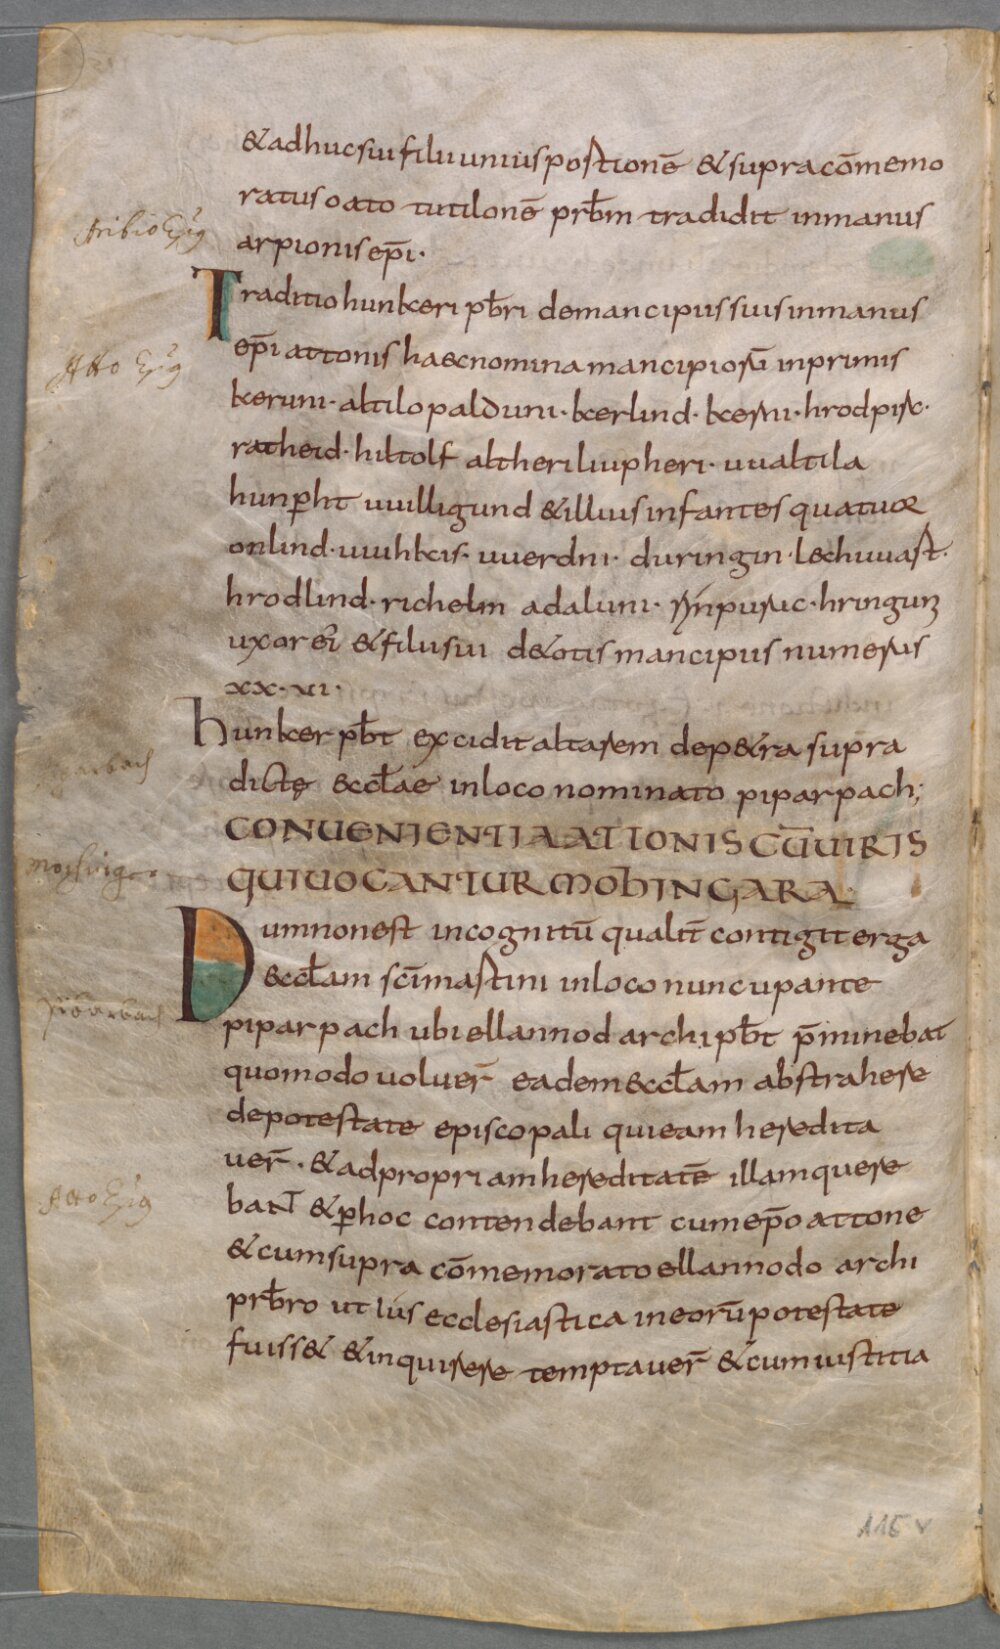 &adhuc sui filii unius postionē & supra cōmemo
ratus oato tutilonē prƀm tradidit in manus
arpionis ep̄i·
Traditio hunkeri pƀri de mancipiis suis in manus
ep̄i attonis haec nomina mancipiorū inprimis
keruni· altilo palduni· kerlind· kerni· hrodpirc·
ratheid· hiltolf altheri liupheri· uualtila
hunp̱ht uuilligund & illius infantes quatuor
onlind· uuihkis· uuerdni· duringin· lechuuast·
hrodlind· richelm adaluni· hringunz
uxor ei & filii sui de&otis mancipiis numerus
xx· xi·
hunker pƀt excidit altarem dep&ra supra
dictę ecclae in loco nominato piparpach;
CONUENIENTIA ATTONIS CŪ VIRIS
QUI UOCANTUR MOHINGARA·
Dum non est incognitū qualit̄ contigit erga
ecclam scī mastini in loco nuncupante
piparpach ubi ellannod archipƀt p̄minebat
quomodo voluer̄ eadem ecclam abstrahere
de potestate episcopali qui eam heredita
uer̄· & ad propriam hereditatē illam quere
bant & p̱ hoc contendebant cum ep̄o attone
& cum supra cōmemorato ellannodo archi
prƀro ut ius ecclesiastica in eorū potestate
fuiss& & inquirere temptauer̄ & cum iustitia
Atto
Atto
115 v